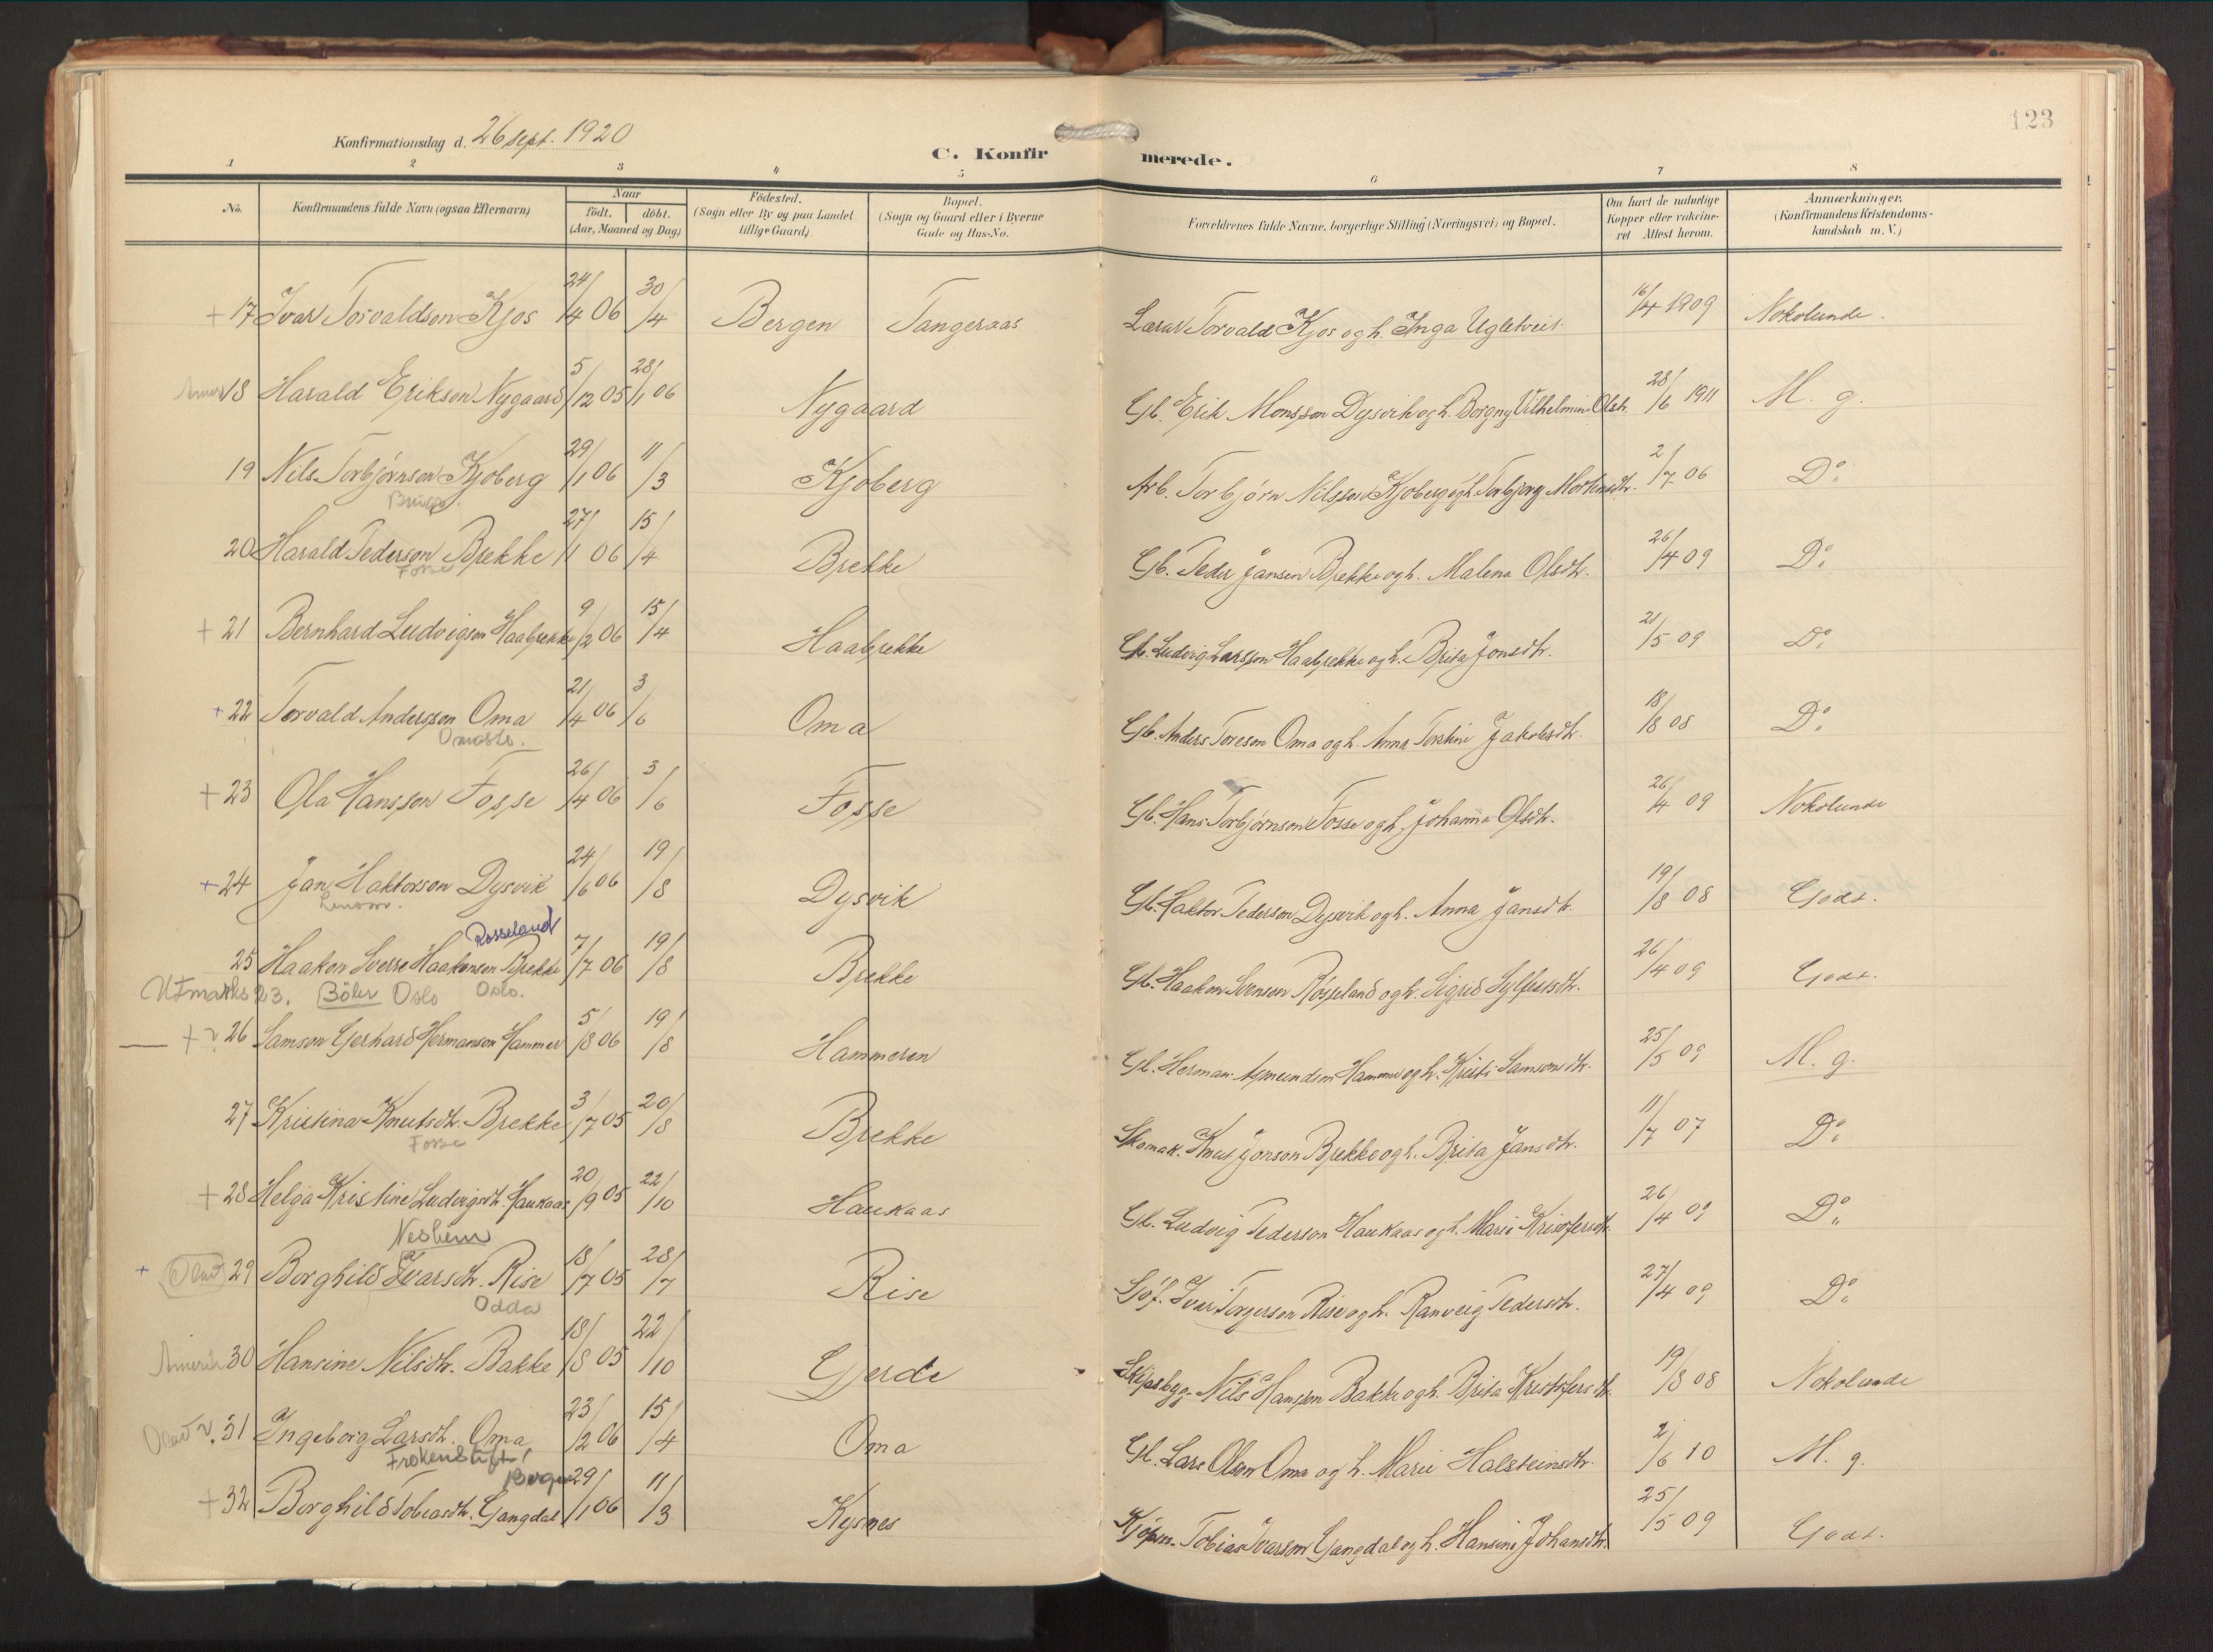 123
Konfirmationsdag d. 26 sept. 1920
C. Konfirmerede.
1 2 3 4 5 6 7 8
No. Konfirmandens fulde Navn (ogsaa Efternavn) Naar födt. döbt. (Aar, Maaned og Dag) Födested. (Sogn eller By og paa Landet tillige Gaard) Bopæl. (Sogn og Gaard eller i Byerne Gade og Hus-No. Forældrenes fulde Navne, borgerlige Stilling (Næringsvei) og Bopæl. Om havt de naturlige Kopper eller vakcineret Attest herom. Anmærkninger. (Konfirmandens Kristendomskundskab m. V.)
+ 17 Ivar Torvaldson Kjos 24/4 06 30/4 Bergen Tangeraas Lærar Torvald Kjos og h. Inga Ugletveit 16/4 1909 Nokolunde.
18 Harald Erikson Nygaard 5/12 05 28/1 06 Nygaard Gb. Erik Monsson Dysvik og h. Borgny Vilhelmine Olsdr. 28/6 1911 M. g.
19 Nils Torbjørnson Kjoberg 29/1 06 11/3 Kjoberg Arb. Torbjørn Nilsson Kjoberg og h. Torbjorg Mortensdtr. 2/7 06 Do.
20 Harald Pederson Brekke 27/1 06 15/4 Brekke Gb. Peder Jansen Brekke og h. Malena Olsdtr. 26/4 09 Do.
Fosse
+ 21 Bernhard Ludvigson Haabrekke 9/2 06 15/4 Haabrekke Gb. Ludvig Larsson Haabrekke og h. Brita Jonsdtr. 21/5 09 Do.
+ 22 Torvald Andersson Oma 21/4 06 3/6 Oma Gb. Anders Toreson Oma og h. Anna Torstine Jakobsdtr. 18/8 08 Do.
+ 23 Ola Hansson Fosse 26/4 06 3/6 Fosse Gb. Hans Torbjørnson Fosse og h. Johanna Olsdtr. 26/4 09 Nokolunde
+ 24 Jan Haktorson Dysvik 24/6 06 19/8 Dysvik Gb. Haktor Pederson Dysvik og h. Anna Jansdtr. 19/8 08 Godt.
Rosseland
25 Haakon Sverre Haakonson Brekke 7/7 06 19/8 Brekke Gb. Haakon Svenson Røsseland og h. Sigrid Sylfestsdtr. 26/4 09 Godt.
Utmarks 23. Böler Oslo Oslo.
+ 26 Samson Gerhard Hermanson Hammer 5/8 06 19/8 Hammeren Gb. Herman Asmundson Hammer og h. Kristi Samsonsdtr. 25/5 09 M. g.
27 Kristina Knutsdtr. Brekke 3/7 05 20/8 Brekke Skomak. Knut Jonson Brekke og h. Brita Jansdtr. 11/7 07 Do.
Fosse
+ 28 Helga Kristine Ludvigsdtr. Haukaas 20/9 05 22/10 Haukaas Gb. Ludvig Pederson Haukaas og h. Marie Kristofersdtr. 26/4 09 Do.
Nesheim
+ 29 Borghild Ivarsdtr. Rise 18/7 05 28/7 Rise Sjöf. Iver Torgerson Rise og h. Ranveig Pedersdtr. 27/4 09 Do.
Odda
Amerik 30 Hansine Nilsdtr. Bakke 18/8 05 22/10 Gjerde Skipsbyg. Nils Hansson Bakke og h. Brita Kristofersdtr. 19/8 08 Nokolunde
31 Ingeborg Larsdtr. Oma 23/2 06 15/4 Oma Gb. Lars Olson Oma og h. Marie Halsteinsdtr. 2/6 10 M. g.
Frøkenstift Bergen
+ 32 Borghild Tobiasdtr. Gangdal 29/1 06 11/3 Kysnes Kjøpm. Tobias Ivarson Gangdal og h. Hansine Johansdtr. 25/5 09 Godt.